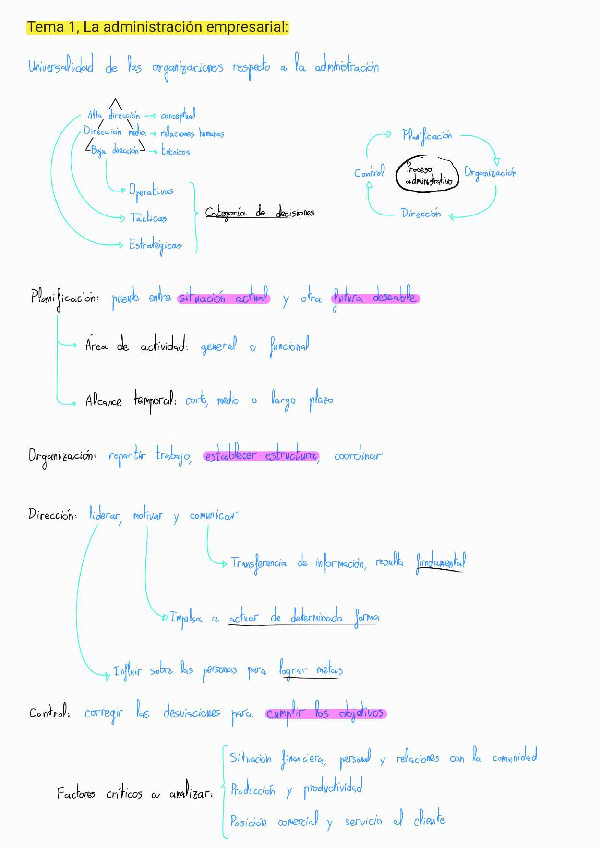 Tema 1, La administración empresarial:
Universalidad de las organizaciones respecto a la administración
Alta dirección → conceptual
Dirección media → relaciones humanas
Baja dirección → técnicos
Operativas
Tácticas
Estratégicas
Categoría de decisiones
Planificación
Control
Proceso administrativo
Organización
Dirección
Planificación: puente entre situación actual y otra futura deseable
Área de actividad: general o funcional
Alcance temporal: corto, medio o largo plazo
Organización: repartir trabajo, establecer estructura, coordinar
Dirección: liderar, motivar y comunicar
Transferencia de información, resulta fundamental
Impulsa a actuar de determinada forma
Influir sobre las personas para lograr metas
Control: corregir las desviaciones para cumplir los objetivos
Factores críticos a analizar:
Situación financiera, personal y relaciones con la comunidad
Producción y productividad
Posición comercial y servicio al cliente